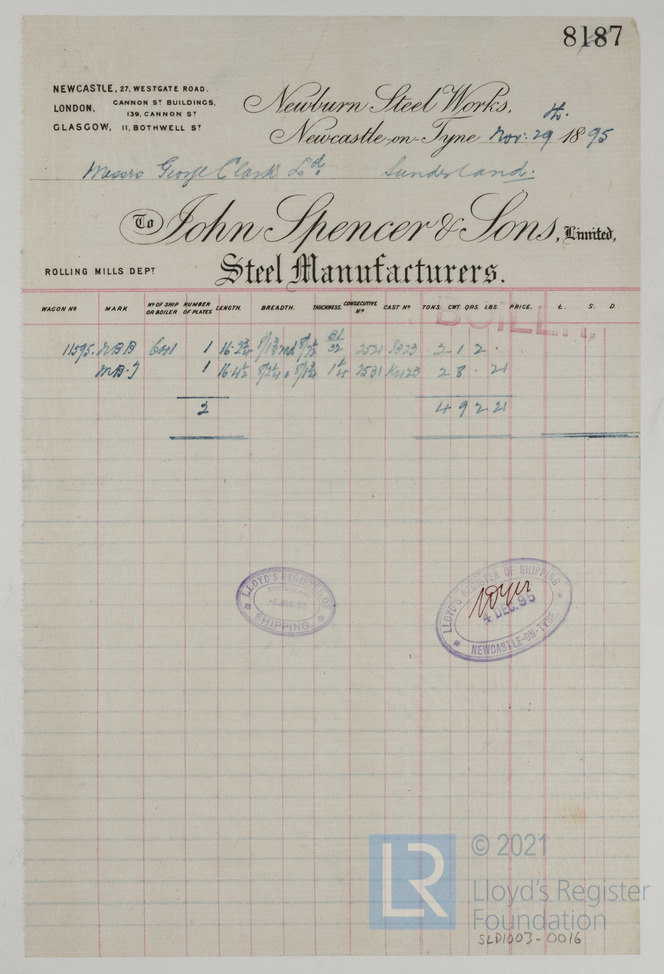 8187
NEWCASTLE, 27, WESTGATE ROAD.
LONDON, CANNON ST BUILDINGS, 139, CANNON ST
GLASGOW, 11, BOTHWELL ST
Newburn Steel Works,
Newcastle-on-Tyne Nov: 29th. 1895
Messrs George Clark Ld. Sunderland.
To John Spencer & Sons, Limited,
ROLLING MILLS DEPT Steel Manufacturers.
WAGON No MARK No OF SHIP OR BOILER NUMBER OF PLATES LENGTH. BREADTH. THICKNESS. CONSECUTIVE No CAST No TONS. CWT. QRS. LBS. PRICE. £. S. D.
BOILER,
11595. 1 31/32 2521 2 1 2 .
1 2531 2 8 . 21
2 4 9 2 21
LLOYD'S REGISTER OF SHIPPING.
LLOYD'S REGISTER OF SHIPPING
4 DEC. 95
NEWCASTLE-ON-TYNE.
LR
© 2021
Lloyd's Register
Foundation
SLD1003-0016